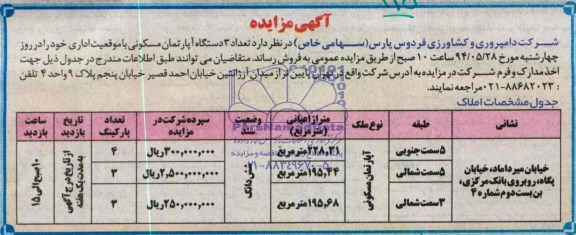 آگهی مزایده
شرکت دامپروری و کشاورزی فردوس پارس (سهامی خاص) در نظر دارد تعداد ۳ دستگاه آپارتمان مسکونی با موقعیت اداری خود را در روز
چهارشنبه مورخ ۹۴/۰۵/۲۸ ساعت ۱۰ صبح از طریق مزایده عمومی به فروش رساند. متقاضیان می توانند طبق اطلاعات مندرج در جدول ذیل جهت
اخذ مدارک و فرم شرکت در مزایده به آدرس شرکت واقع در تهران پایین تر از میدان آرژانتین خیابان احمد قصیر خیابان پنجم پلاک ۹ واحد ۴ تلفن
۰۲۱-۸۸۶۸۲۰۲۳ مراجعه نمایند.
جدول مشخصات املاک
نشانی طبقه نوع ملک متراژ اعیانی (مترمربع) وضعیت سند سپرده شرکت در مزایده تعداد پارکینگ تاریخ بازدید ساعت بازدید
خیابان میرداماد، خیابان پگاه، روبروی بانک مرکزی، بن بست دوم شماره ۴
آپارتمان مسکونی
شش دانگ
از تاریخ درج آگهی به مدت یک هفته
۱۰ صبح الی ۱۵
۵ سمت جنوبی ۲۲۸,۳۱ مترمربع ۳۰۰,۰۰۰,۰۰۰ ریال ۴
۵ سمت شمالی ۱۹۵,۴۴ مترمربع ۲,۵۰۰,۰۰۰,۰۰۰ ریال ۳
۳ سمت شمالی ۱۹۵,۶۸ مترمربع ۲۵۰,۰۰۰,۰۰۰ ریال ۳
ParsNamadData
۰۲۱-۸۸۳۴۹۶۷۰